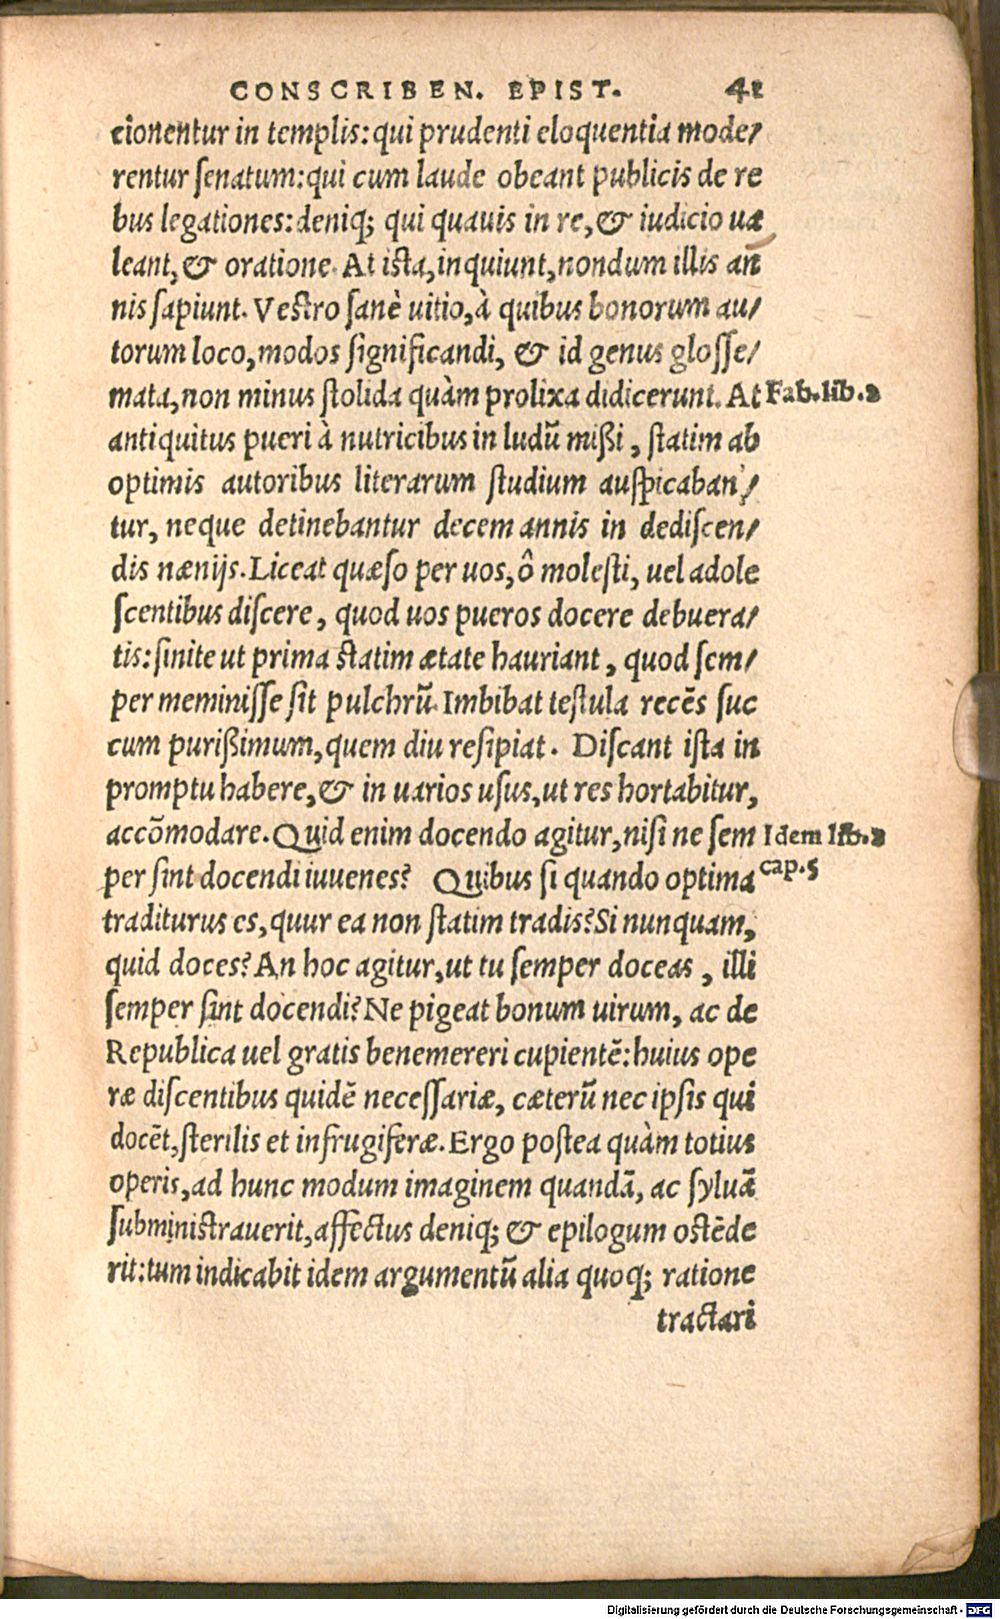 CONSCRIBEN. EPIST. 41
cionentur in templis: qui prudenti eloquentia mode/
rentur ſenatum: qui cum laude obeant publicis de re
bus legationes: deniq; qui quauis in re, & iudicio uæ
leant, & oratione. At iſta, inquiunt, nondum illis an̄
nis ſapiunt. Veſtro ſanè uitio, à quibus bonorum au/
torum loco, modos ſignificandi, & id genus gloſſe/
mata, non minus ſtolida quàm prolixa didicerunt. At Fab. lib. 2
antiquitus pueri à nutricibus in ludũ mißi, ſtatim ab
optimis autoribus literarum ſtudium auſpicaban/
tur, neque detinebantur decem annis in dediſcen/
dis nænijs. Liceat quæſo per uos, ô moleſti, uel adole
ſcentibus diſcere, quod uos pueros docere debuera/
tis: ſinite ut prima ſtatim ætate hauriant, quod ſem/
per meminiſſe ſit pulchrũ. Imbibat teſtula recẽs ſuc
cum purißimum, quem diu reſipiat. Diſcant iſta in
promptu habere, & in uarios uſus, ut res hortabitur,
accõmodare. Quid enim docendo agitur, niſi ne ſem Idem lib. 2
per ſint docendi iuuenes? Quibus ſi quando optima cap. 5
traditurus es, quur ea non ſtatim tradis? Si nunquam,
quid doces? An hoc agitur, ut tu ſemper doceas, illi
ſemper ſint docendi? Ne pigeat bonum uirum, ac de
Republica uel gratis benemereri cupientẽ: huius ope
ræ diſcentibus quidẽ neceſſariæ, cæterũ nec ipſis qui
docẽt, ſterilis et infrugiferæ. Ergo poſtea quàm totius
operis, ad hunc modum imaginem quandã, ac ſyluã
ſubminiſtrauerit, affectus deniq; & epilogum oſtẽde
rit: tum indicabit idem argumentũ alia quoq; ratione
tractari
Digitalisierung gefördert durch die Deutsche Forschungsgemeinschaft - DFG